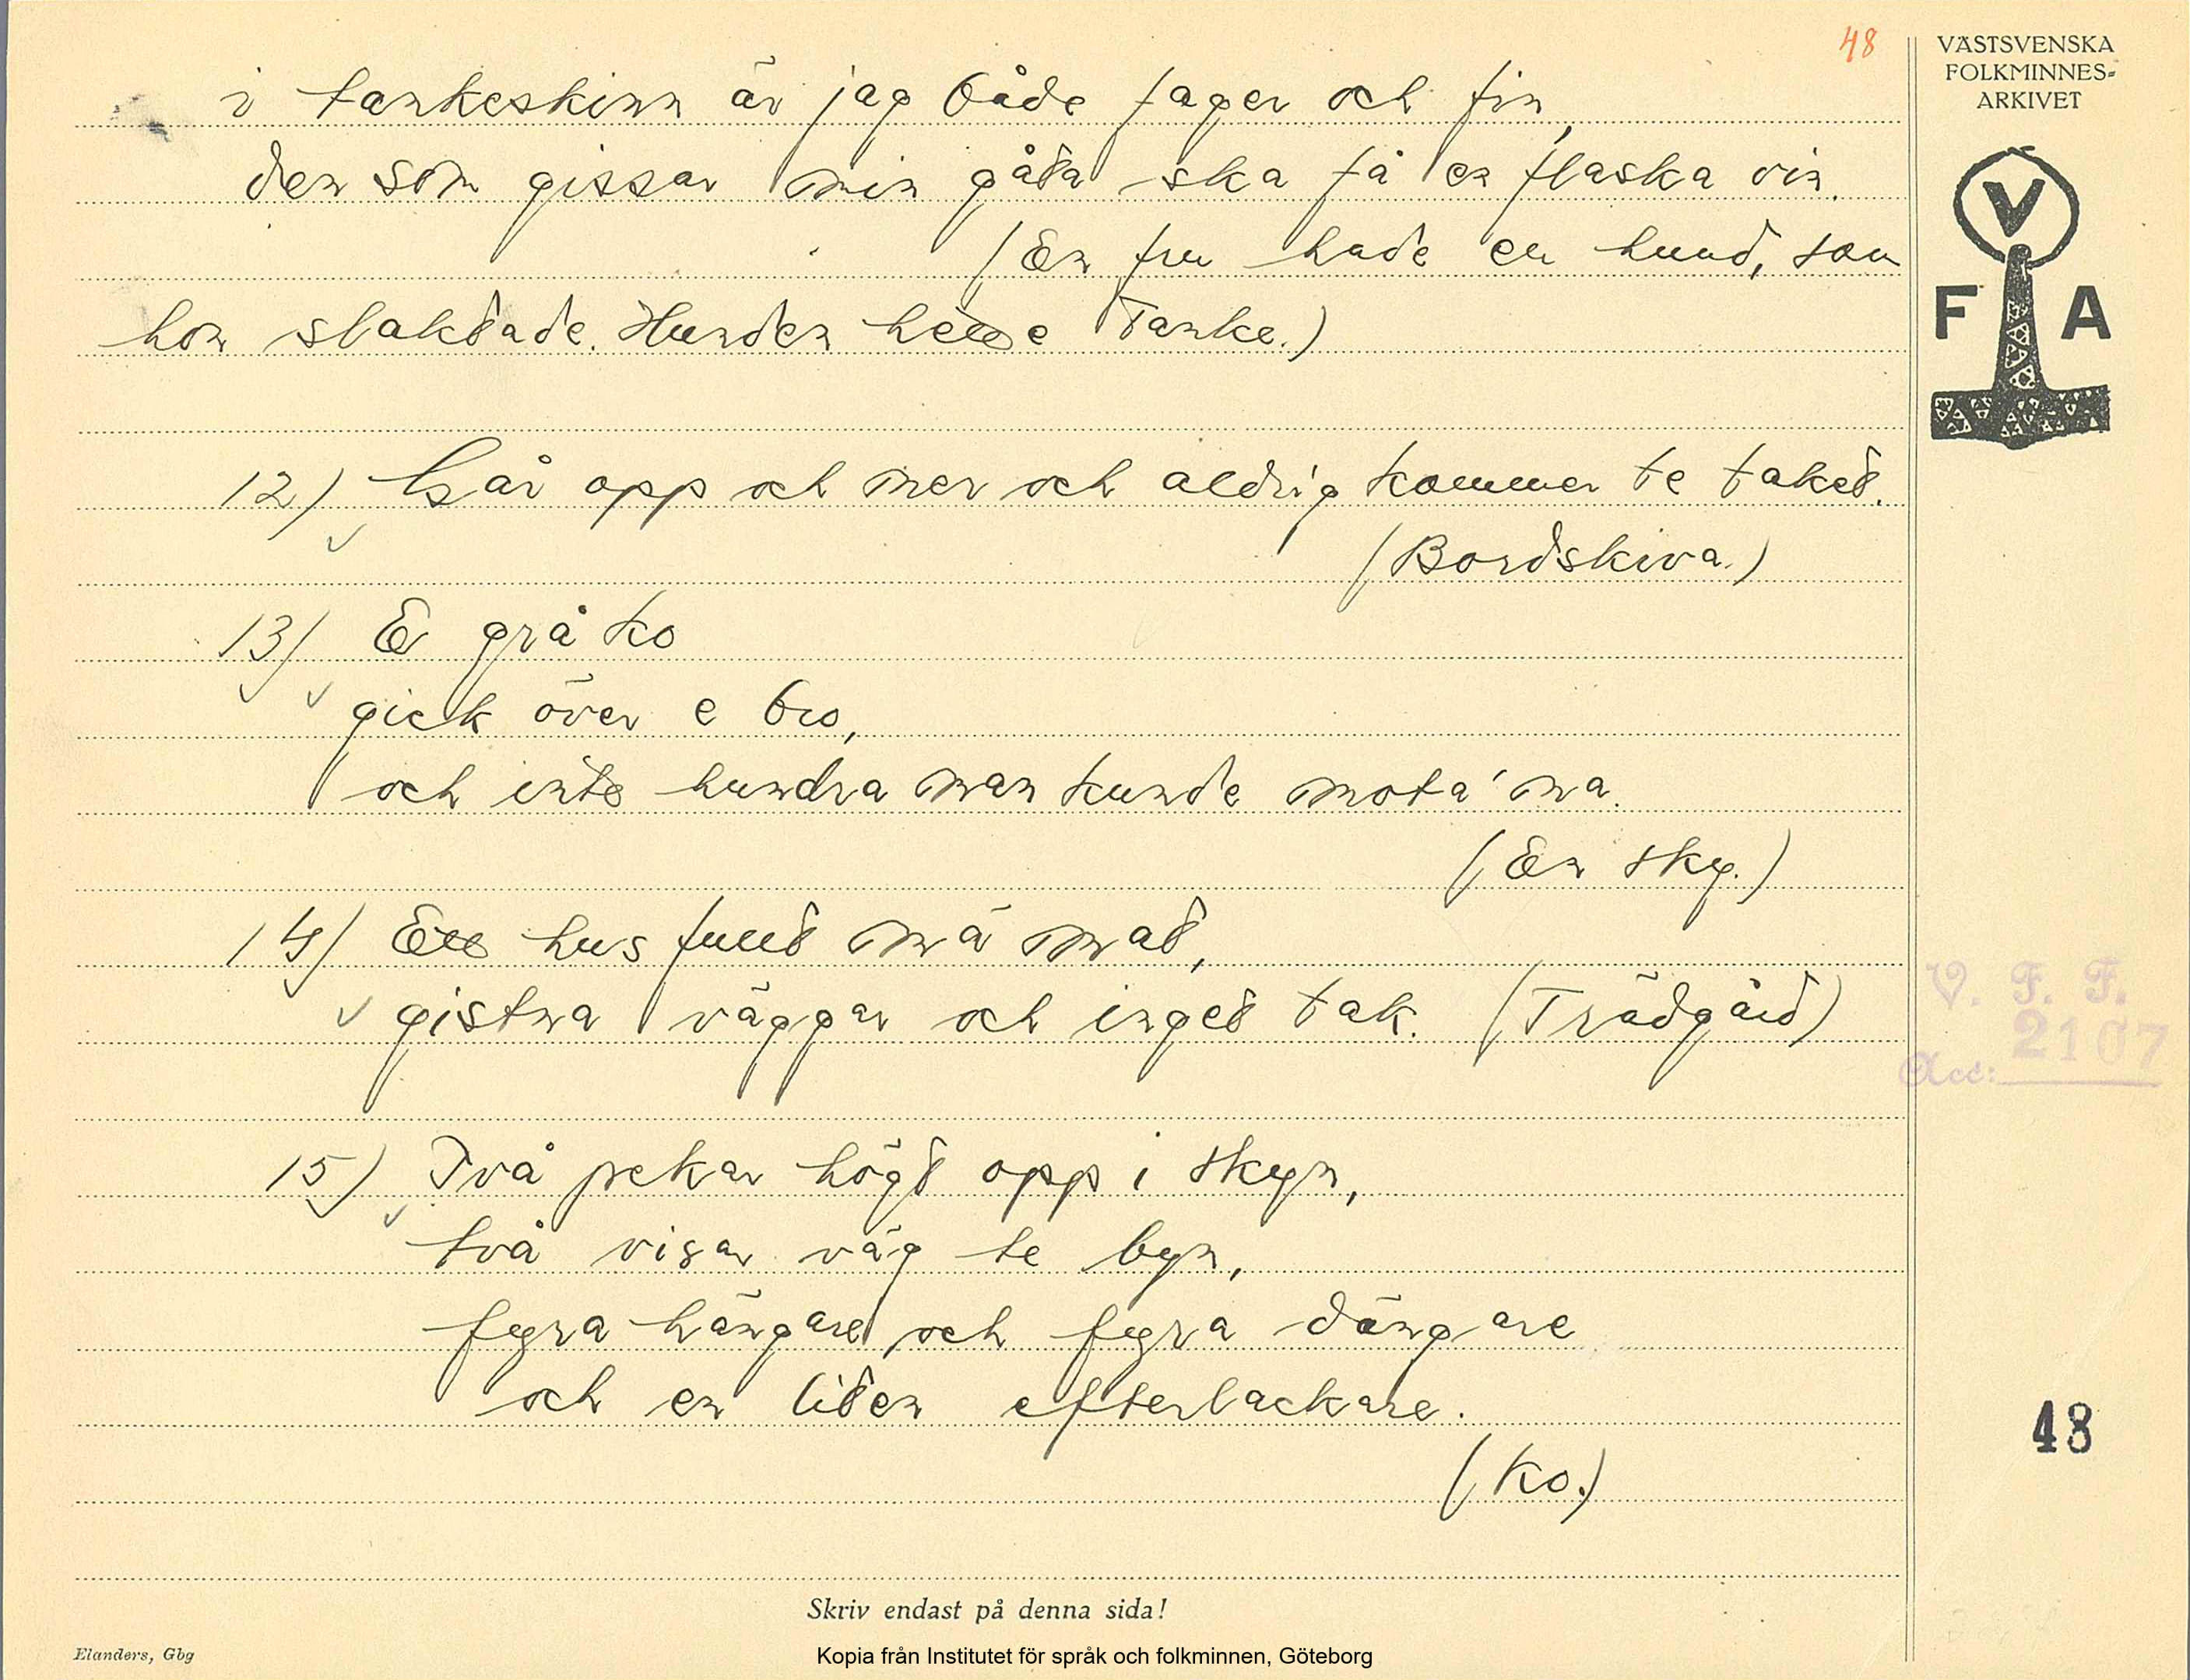 48
VÄSTSVENSKA
FOLKMINNES=
ARKIVET
V
F A
i tankeskinn är jag både fager och fin,
den som gissar min gåta ska få en flaska vin.
(En fru hade en hund, som
hon slaktade. Hunden hette Tanke.)
12) Går opp och ner och aldrig kommer te taket.
(Bordskiva.)
13) E grå ko
gick över e bro,
och inte hundra man kunde mota'na.
(En sky.)
14) Ett hus fullt mä mat,
gistna väggar och inget tak. (Trädgård)
15) Två pekar högt opp i skyn,
två visar väg te byn,
fyra hängare och fyra dängare
och en liten efterlackare.
(Ko.)
V. F. F.
Acc: 2107
48
Skriv endast på denna sida!
Elanders, Gbg
Kopia från Institutet för språk och folkminnen, Göteborg